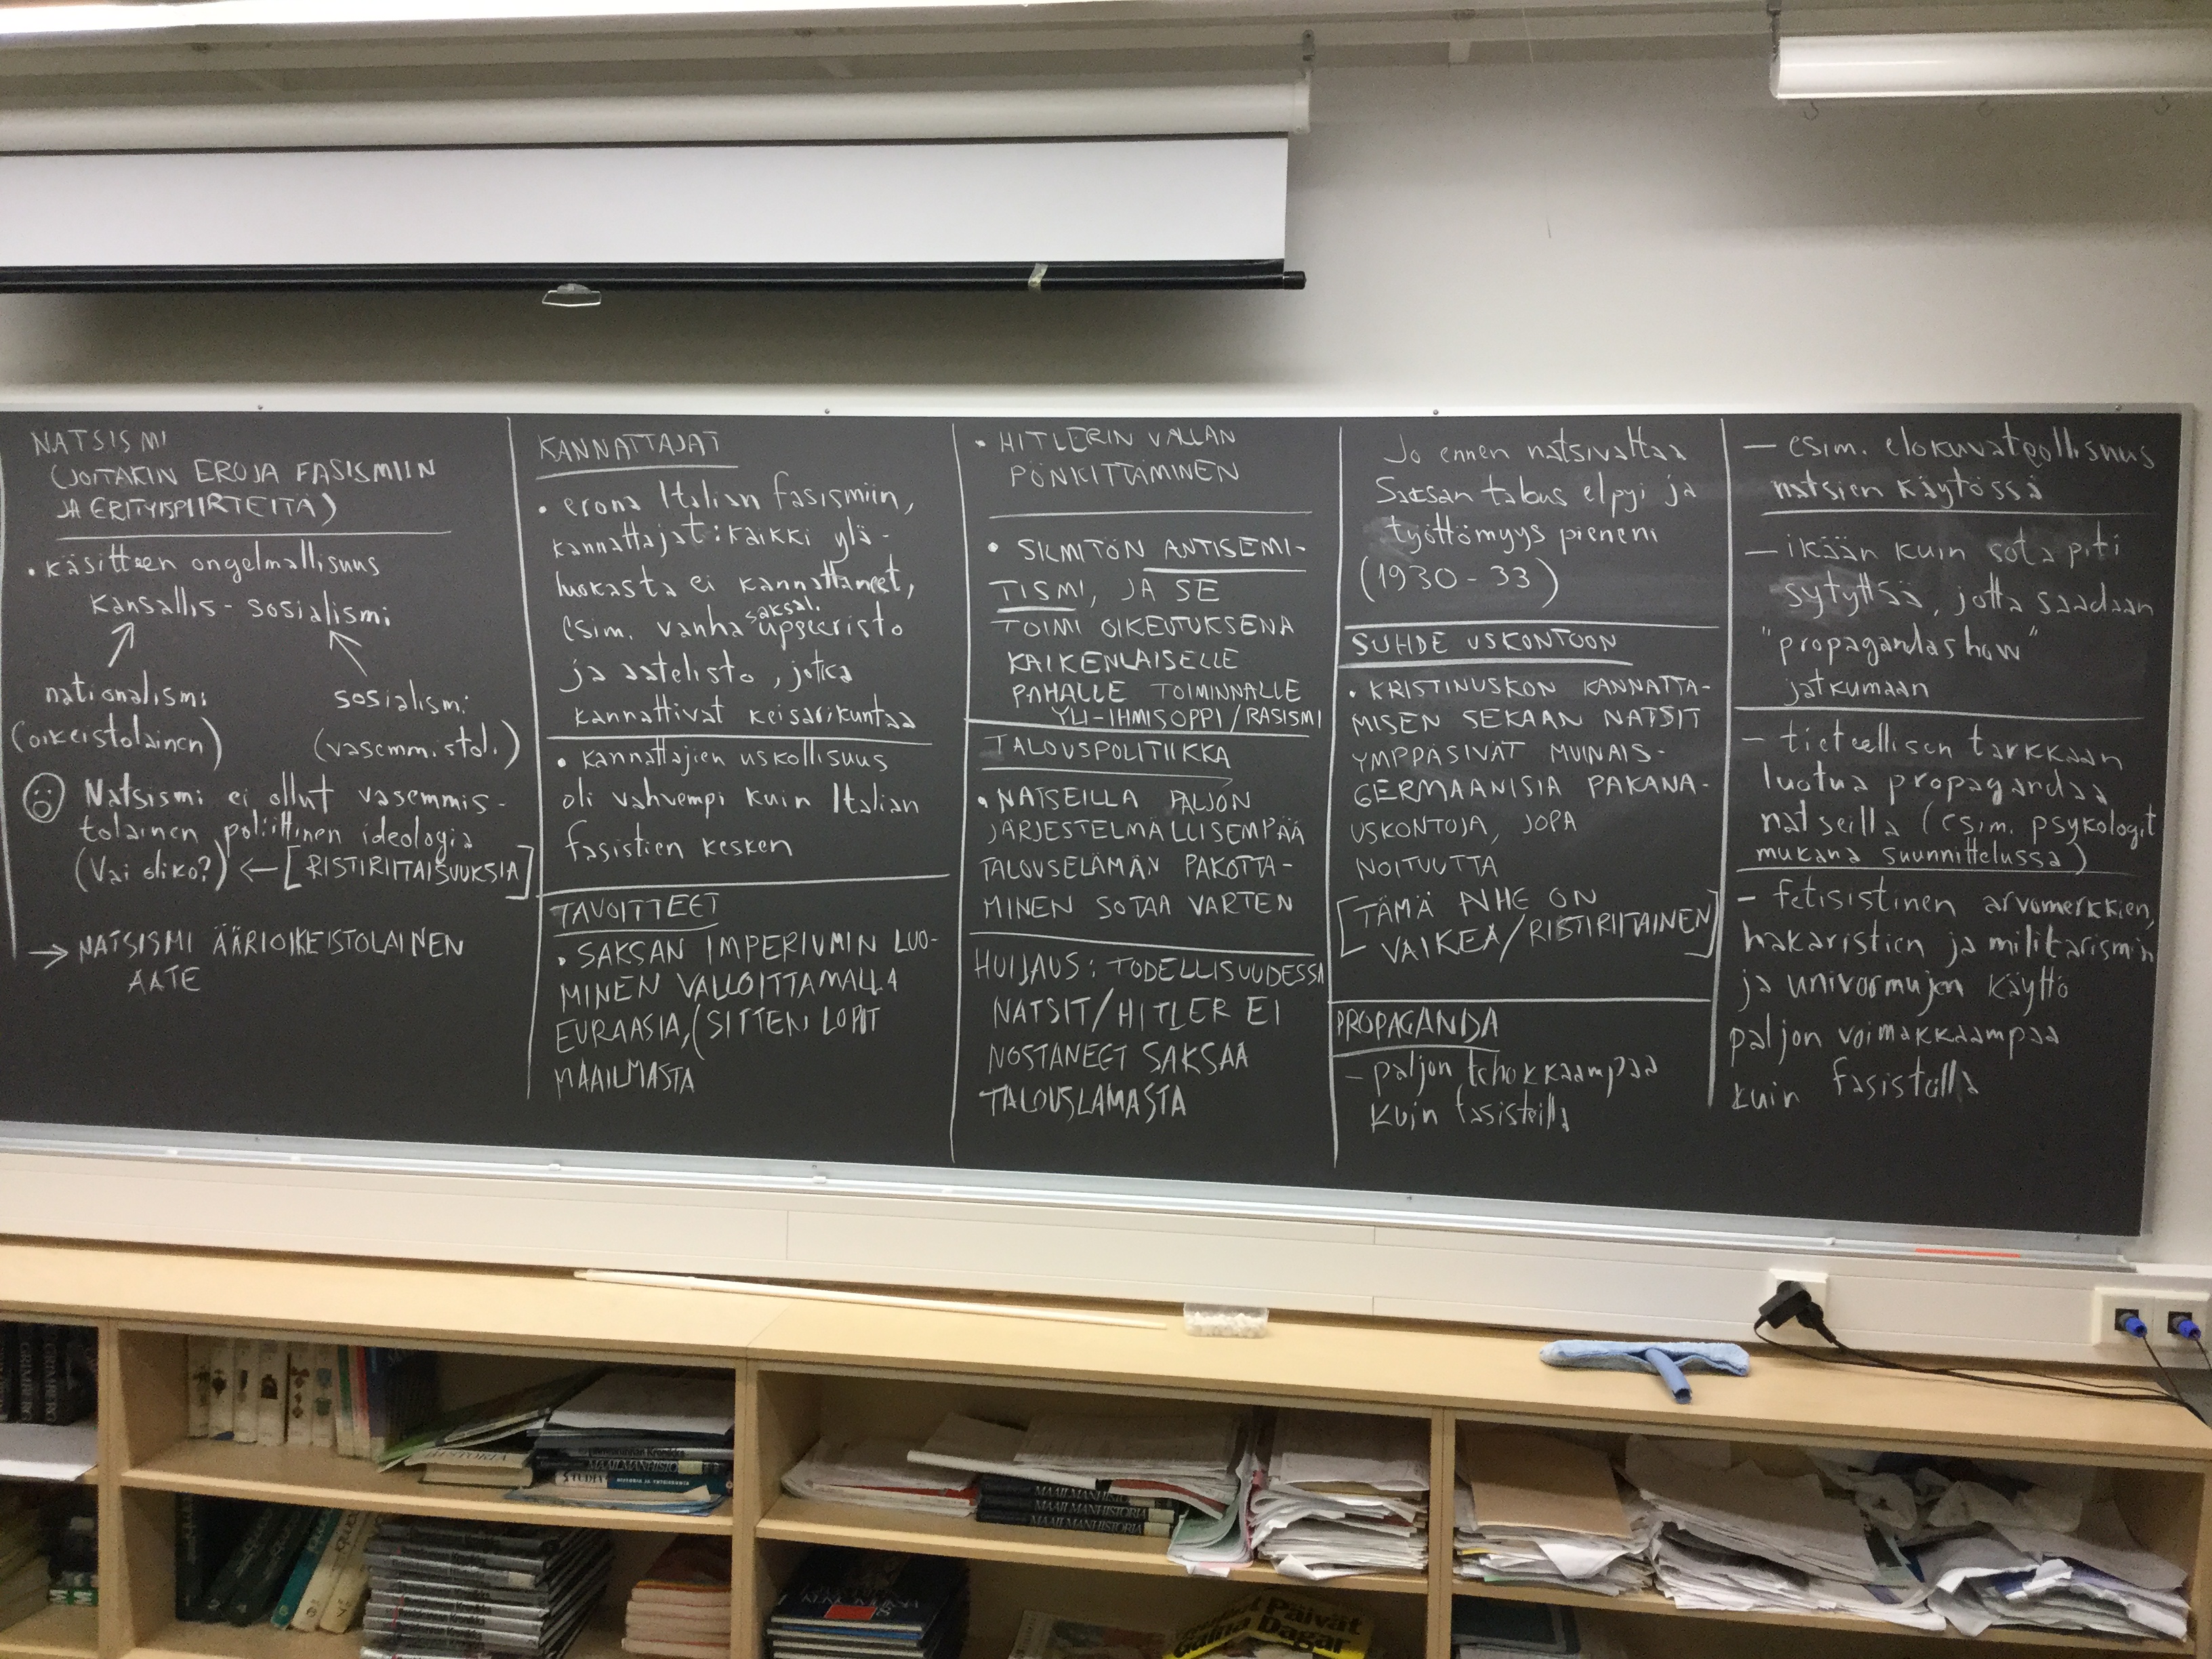 NATSISMI
(JOITAKIN EROJA FASISMIIN
JA ERITYISPIIRTEITÄ)
• käsitteen ongelmallisuus
kansallis-sosialismi
nationalismi
(oikeistolainen)
sosialismi
(vasemmistol.)
Natsismi ei ollut vasemmis-
tolainen poliittinen ideologia
(Vai oliko?) ← [RISTIRIITAISUUKSIA]
→ NATSISMI ÄÄRIOIKEISTOLAINEN
AATE
KANNATTAJAT
• erona Italian fasismiin,
kannattajat: kaikki ylä-
luokasta ei kannattaneet,
esim. vanha saksal. upseeristo
ja aatelisto, jotka
kannattivat keisarikuntaa
• kannattajien uskollisuus
oli vahvempi kuin Italian
fasistien kesken
TAVOITTEET
• SAKSAN IMPERIUMIN LUO-
MINEN VALLOITTAMALLA
EURAASIA, (SITTEN LOPUT
MAAILMASTA
• HITLERIN VALLAN
PÖNKITTÄMINEN
• SILMITÖN ANTISEMI-
TISMI, JA SE
TOIMI OIKEUTUKSENA
KAIKENLAISELLE
PAHALLE TOIMINNALLE
YLI-IHMISOPPI/RASISMI
TALOUSPOLITIIKKA
• NATSEILLA PALJON
JÄRJESTELMÄLLISEMPÄÄ
TALOUSELÄMÄN PAKOTTA-
MINEN SOTAA VARTEN
HUIJAUS: TODELLISUUDESSA
NATSIT/HITLER EI
NOSTANEET SAKSAA
TALOUSLAMASTA
Jo ennen natsivaltaa
Saksan talous elpyi ja
työttömyys pieneni
(1930-33)
SUHDE USKONTOON
• KRISTINUSKON KANNATTA-
MISEN SEKAAN NATSIT
YMPPÄSIVÄT MUINAIS-
GERMAANISIA PAKANA-
USKONTOJA, JOPA
NOITUUTTA
[TÄMÄ AIHE ON
VAIKEA/RISTIRIITAINEN]
PROPAGANDA
- paljon tehokkaampaa
kuin fasisteilla
- esim. elokuvateollisuus
natsien käytössä
- ikään kuin sota piti
sytyttää, jotta saadaan
"propagandashow"
jatkumaan
- tieteellisen tarkkaan
luotua propagandaa
natseilla (esim. psykologit
mukana suunnittelussa)
- fetisistinen arvomerkkien,
hakaristien ja militarismin
ja univormujen käyttö
paljon voimakkaampaa
kuin fasisteilla
HISTORIA
MAAILMANHISTORIA
STUDIA
MAAILMANHISTORIA
MAAILMANHISTORIA
MAAILMANHISTORIA
Päivät
Gulna Dagar